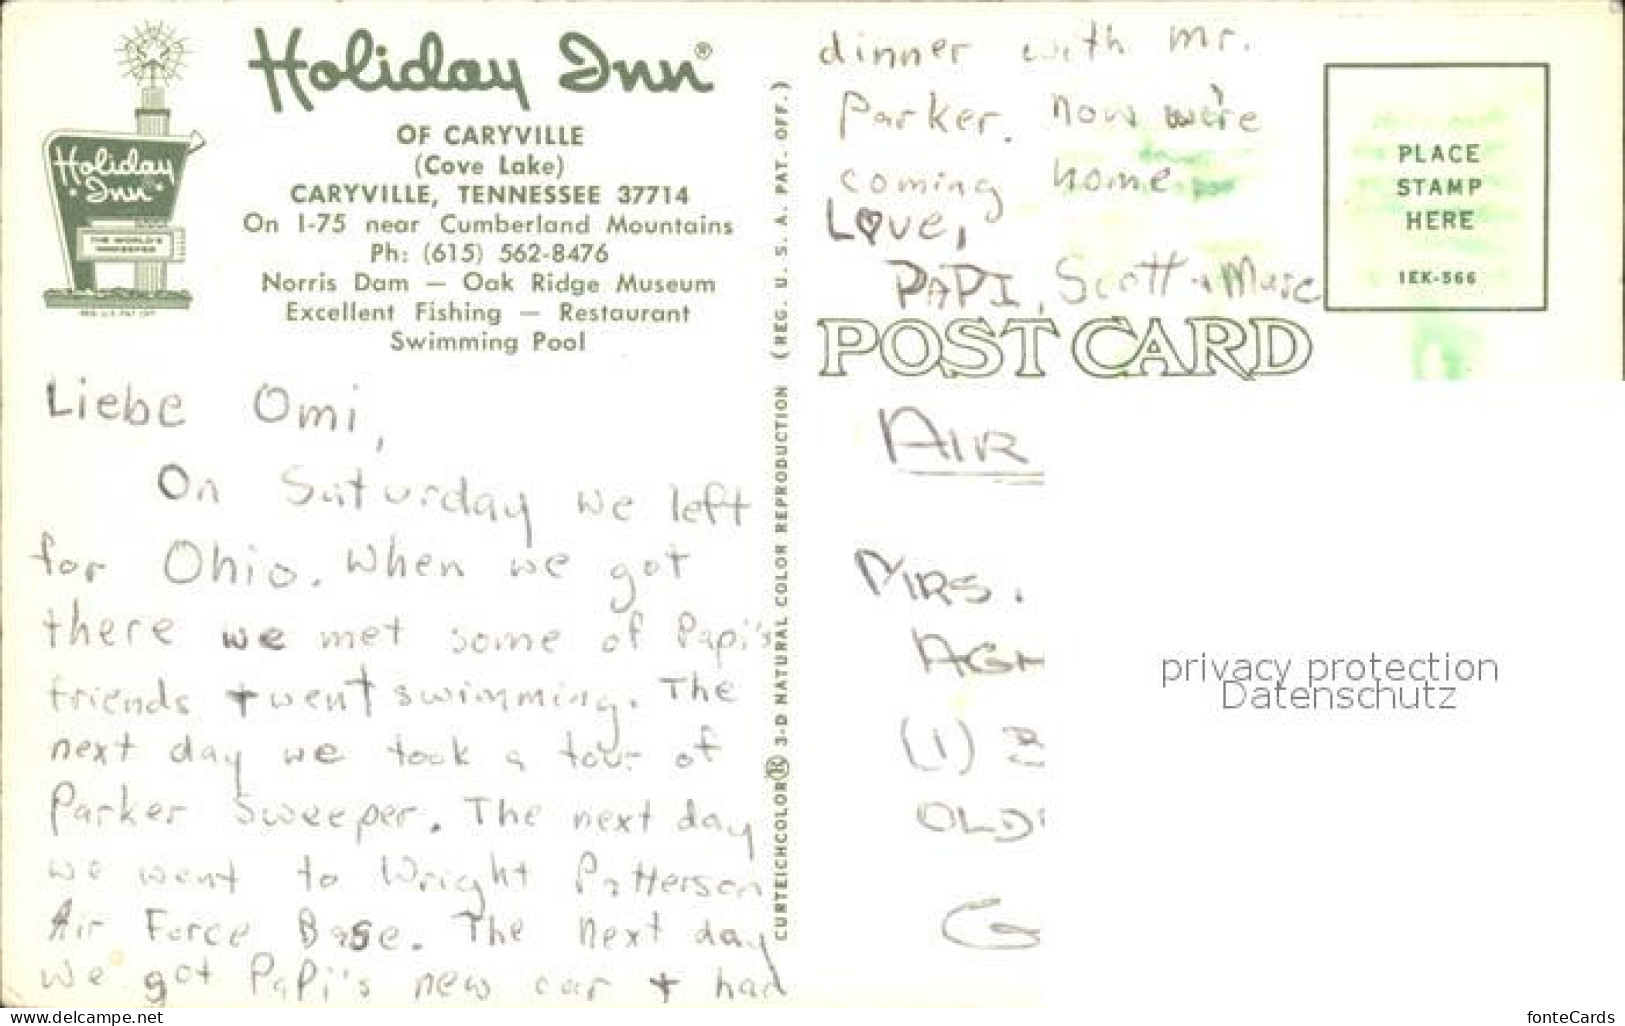 Holiday Inn®
OF CARYVILLE
(Cove Lake)
CARYVILLE, TENNESSEE 37714
On I-75 near Cumberland Mountains
Ph: (615) 562-8476
Norris Dam — Oak Ridge Museum
Excellent Fishing — Restaurant
Swimming Pool
Holiday
Inn
THE WORLD'S
INNKEEPER
Liebe Omi,
On Saturday we left
for Ohio. When we got
there we met some of Papi's
friends + went swimming. The
next day we took a tour of
Parker Sweeper. The next day
we went to Wright Patterson
Air Force Base. The next day
we got Papi's new car + had
CURTEICHCOLOR® 3-D NATURAL COLOR REPRODUCTION (REG. U. S. A. PAT. OFF.)
dinner with Mr.
Parker. Now we're
coming home
Love,
PAPI, Scott +
POST CARD
PLACE
STAMP
HERE
1EK-566
AIR
MRS.
AGN
(1)
OLD
G
privacy protection
Datenschutz
www.delcampe.net
fonteCards